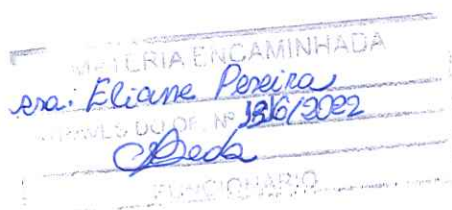 MATERIA ENCAMINHADA
sra: Eliane Pereira
ATRAVES DO OF. Nº /2022
FUNCIONARIO